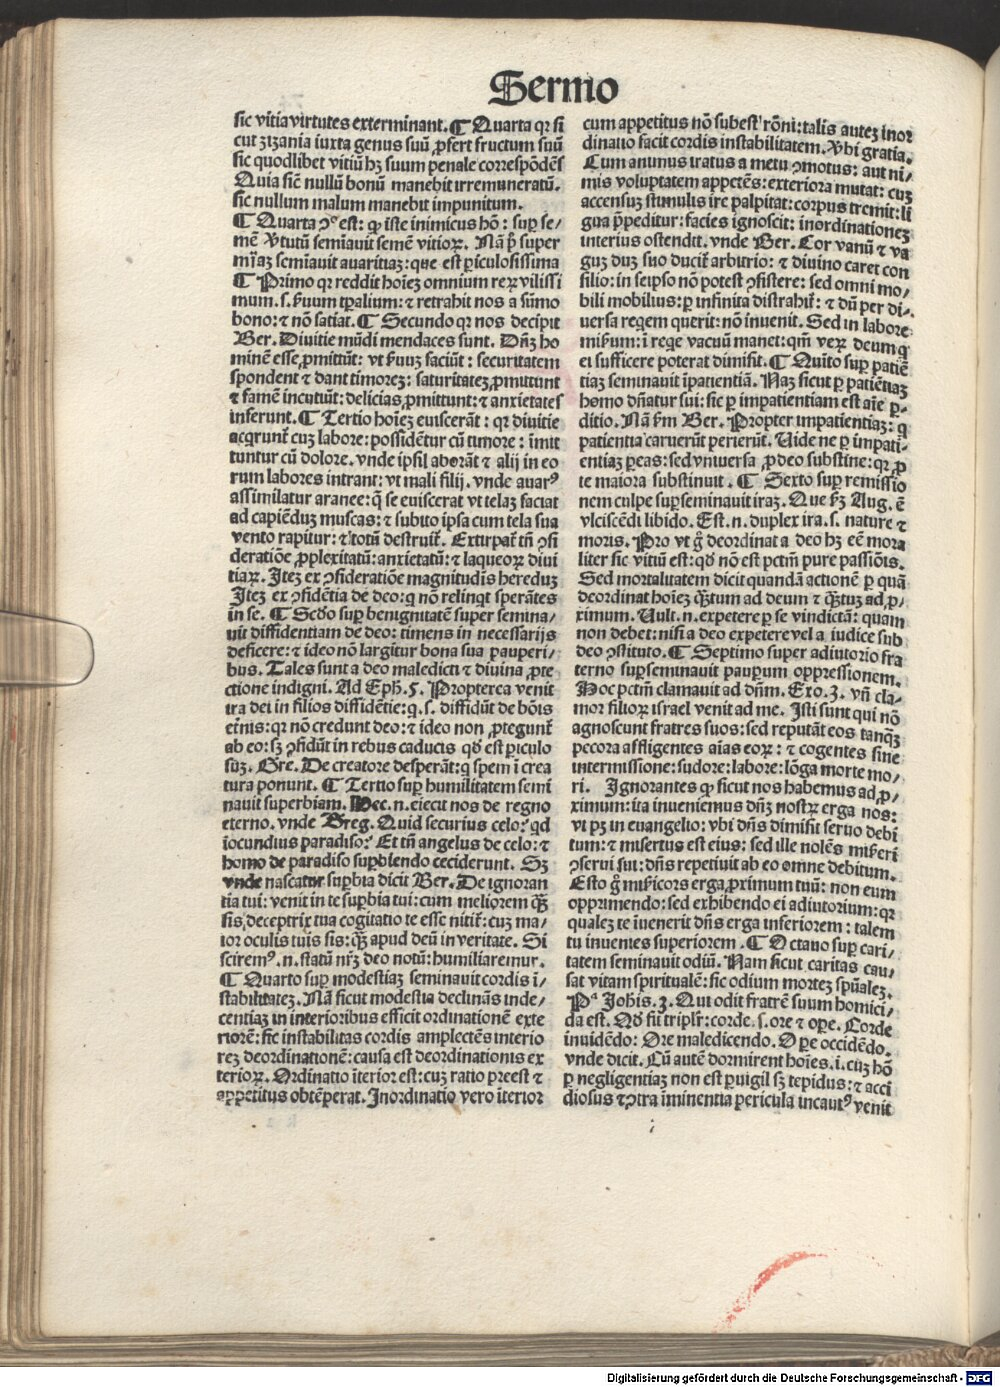 Sermo
sic vitia virtutes exterminant. ¶ Quarta qꝛ si
cut zizania iuxta genus suū ꝓfert fructum suū
sic quodlibet vitiū hꝫ suum penale correspōdēs
Quia sicē nullū bonū manebit irremuneratū.
sic nullum malum manebit impunitum.
¶ Quarta ꝯᵉ est: ꝙ iste inimicus hō: suꝑ se⸗
mē v̓tutū semīauit semē vitioꝝ. Nā p̄ super
mīaꝫ semīauit avaritiaꝫ: que est ꝑiculosissima
¶ Primo qꝛ reddit hoīeꝫ omnium reꝝ vilissi
mum. s. ẜuum tꝑalium: ⁊ retrahit nos a sūmo
bono: ⁊ nō satiat. ¶ Secundo qꝛ nos decipit
Ber. Diuitie mūdi mendaces sunt. Dn̄ꝫ ho
minē esse ꝓmittūt: vt ẜuuꝫ faciūt: securitatem
spondent ⁊ dant timoreꝫ: saturitateꝫ ꝓmittunt
⁊ famē incutiūt: delicias ꝓmittunt: ⁊ anxietates
inferunt. ¶ Tertio hoīeꝫ euiscerāt: qꝛ diuitie
acq̄runt̄ cuꝫ labore: possidētur cū timore: īmit
tuntur cū dolore. vnde ipsi laborāt ⁊ alij in eo
rum labores intrant: vt mali filij. vnde auarꝰ
assimilatur aranee: q̄ se euiscerat vt telaꝫ faciat
ad capiēduꝫ muscas: ⁊ subito ip̄a cum tela sua
vento rapitur: ⁊ totū destruit̄. Extirpat̄ tn̄ ꝯsi
deratiōe ꝓplexitatū: anxietatū: ⁊ laqueoꝝ diui
tiaꝝ. Iteꝫ ex ꝯsideratiōe magnitudīs hereduꝫ
Iteꝫ ex ꝯfidētia de deo: q̄ nō relinqt sperātes
in se. ¶ Scd̄o suꝑ benignitatē super semina⸗
uit diffidentiam de deo: timens in necessarijs
deficere: ⁊ ideo nō largitur bona sua pauperi⸗
bus. Tales sunt a deo maledicti ⁊ diuina ꝓte
ctione indigni. Ad Eph̄. 5. Propterea venit
ira dei in filios diffidētie: q̄. s. diffidūt de bōis
et̄nis: qꝛ nō credunt deo: ⁊ ideo non ꝓtegunt̄
ab eo: sꝫ ꝯfidūt in rebus caducis qd̄ est ꝑiculo
suꝫ. Gre. De creatore desperāt: q̄ spem ī crea
tura ponunt. ¶ Tertio suꝑ humilitatem semi
nauit superbiam. Hec. n. eiecit nos de regno
eterno. vnde Greg. Quid securius celo: qd
iocundius paradiso: Et tn̄ angelus de celo: ⁊
homo de paradiso suꝑbiendo ceciderunt. Sꝫ
vnde nascatur suꝑbia dicit Ber. De ignoran
tia tui: venit in te suꝑbia tui: cum meliorem q̄ꝫ
sis, deceptrix tua cogitatio te esse nitit̄: cuꝫ ma⸗
ior oculis tuis sis: q̄ꝫ apud deū in veritate. Si
sciremꝰ. n. statū nr̄ꝫ deo notū: humiliaremur.
¶ Quarto suꝑ modestiaꝫ seminauit cordis ī⸗
stabilitateꝫ. Nā sicut modestia declināns inde⸗
centiaꝫ in interioribus efficit ordinationē exte
riorē: sic instabilitas cordis amplectēs interio
reꝫ deordinationē: causa est deordinationis ex
terioꝝ. Ordinatio īterior est: cuꝫ ratio preest ⁊
appetitus obtēperat. Inordinatio vero īterior
cum appetitus nō subestꝰ rōni: talis auteꝫ inor
dinatio facit cordis instabilitatem. Vbi gratia.
Cum animus iratus a metu ꝯmotus: aut ni⸗
mis voluptatem appetēs: exteriora mutat: cuꝫ
accensuꝫ stimulis ire palpitat: corpus tremit: li
gua p̄peditur: facies ignoscit: inordinationeꝫ
interius ostendit. vnde Ber. Cor vanū ⁊ va
guꝫ duꝫ suo ducit̄ arbitrio: ⁊ diuino caret con
silio: in seipso nō potest ꝯsistere: sed omni mo⸗
bili mobilius: ꝑ infinita distrahit̄: ⁊ dū per di⸗
uersa requiem querit: nō inuenit. Sed in labore
mis̄um: ī reqe vacuū manet: qm̄ veꝝ deum q
ei sufficere poterat dimisit. ¶ Quīto suꝑ patiē
tiaꝫ seminauit īpatientiā. Naꝫ sicut ꝑ patiētiaꝫ
homo dn̄atur sui: sic ꝑ impatientiam est aīe ꝑ⸗
ditio. Nā ẜm Ber. Propter impatientiaꝫ: q
patientia caruerūt perierūt. Uide ne ꝑ impati⸗
entiaꝫ ꝑeas: sed vniuersa ꝓ deo substine: qꝛ ꝓ
te maiora substinuit. ¶ Sexto suꝑ remissio
nem culpe suꝑseminauit iraꝫ. Que ẜꝫ Aug. ē
vlciscēdi libido. Est. n. duplex ira. s. nature ⁊
moris. Pro vt g̊ deordinat a deo hꝫ eē mora
liter sic vitiū est: qd̄ nō est pctm̄ pure passiōis.
Sed mortalitatem dicit quandā actionē ꝑ quā
deordinat hoīeꝫ q̄ꝫtum ad deum ⁊ q̄ꝫtuꝫ ad ꝓ⸗
ximum. Uult. n. expetere ꝑ se vindictā: quam
non debet: nisi a deo expetere vel a iudice sub
deo ꝯstituto. ¶ Septimo super adiutorio fra
terno suꝑseminauit pauꝑum oppressionem.
Hoc pctm̄ clamauit ad dn̄m. Exo. 3. vn̄ cla⸗
mor filioꝝ israel venit ad me. Isti sunt qui nō
agnoscunt fratres suos: sed reputāt eos tanq̄ꝫ
pecora affligentes aīas eoꝝ: ⁊ cogentes sine
intermissione: sudore: labore: lōga morte mo⸗
ri. Ignorantes ꝙ sicut nos habemus ad ꝓ⸗
ximum: ita inueniemus dn̄ꝫ nostꝝ erga nos:
vt pꝫ in euangelio: vbi dn̄s dimisit seruo debi
tum: ⁊ misertus est eius: sed ille nolēs mis̄eri
ꝯserui sui: dn̄s repetiuit ab eo omne debitum.
Esto g̊ mis̄icors erga ꝓximum tuū: non eum
opprimendo: sed exhibendo ei adiutorium: qꝛ
qualeꝫ te īuenerit dn̄s erga inferiorem: talem
tu inuenies superiorem. ¶ Octauo suꝑ cari⸗
tatem seminauit odiū. Nam sicut caritas cau⸗
sat vitam spiritualē: sic odium morteꝫ spūaleꝫ.
Pᵃ Johis. 3. Qui odit fratrē suum homici⸗
da est. Qd̄ fit tripl̄r: corde. s. ore ⁊ oꝑe. Corde
inuidēdo: Ore maledicendo. Oꝑe occidēdo.
vnde dicit. Cū autē dormirent hoīes. i. cuꝫ hō
ꝑ negligentiaꝫ non est ꝑuigil sꝫ tepidus: ⁊ acci
diosus ⁊ ꝯtra iminentia pericula incautꝰ venit
Digitalisierung gefördert durch die Deutsche Forschungsgemeinschaft - DFG